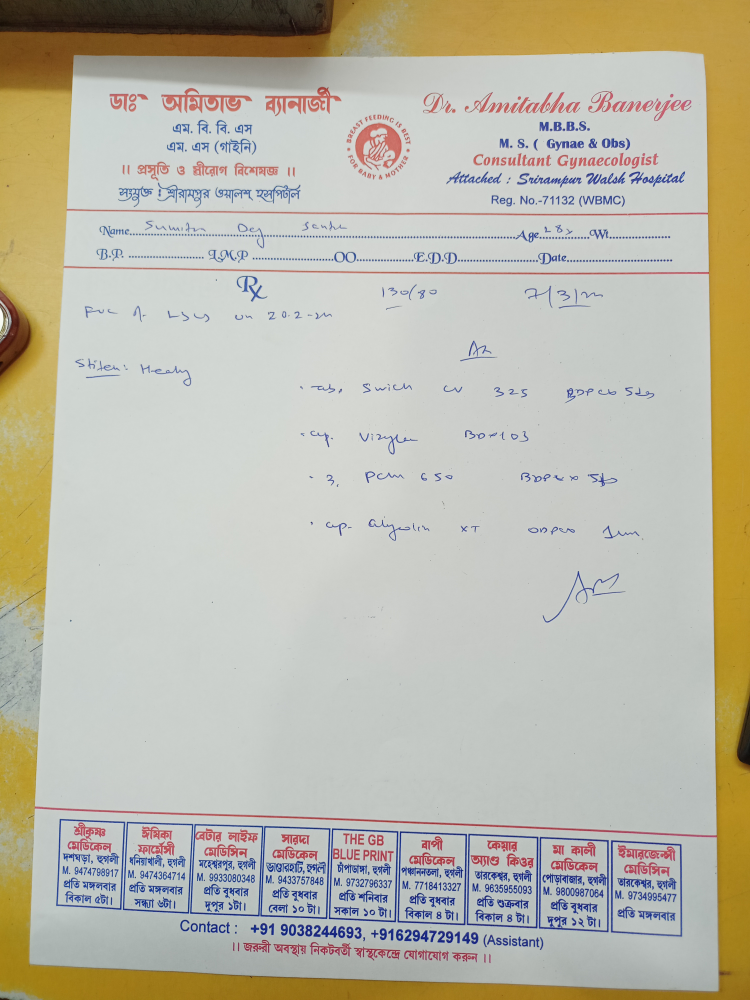 ডাঃ অমিতাভ ব্যানার্জী
এম. বি. বি. এস
এম. এস (গাইনি)
।। প্রসূতি ও স্ত্রীরোগ বিশেষজ্ঞ ।।
সংযুক্ত : শ্রীরামপুর ওয়ালশ্ হসপিটাল
BREAST FEEDING IS BEST
FOR BABY & MOTHER
Dr. Amitabha Banerjee
M.B.B.S.
M. S. ( Gynae & Obs)
Consultant Gynaecologist
Attached : Srirampur Walsh Hospital
Reg. No.-71132 (WBMC)
Name Sumitra Dey Age 28y Wt.
B.P. L.M.P OO E.D.D Date
Rx 130/80 7/3/
LSCS on 20.2-
Stitch: Healthy
Adv
Tab. Swich CV 325 BDPC 5d
Cap. BD
3. PCM 650 BDPC 5d
Cap. XT ODPC 1m
শ্রীকৃষ্ণ মেডিকেল
দশঘড়া, হুগলী
M. 9474798917
প্রতি মঙ্গলবার
বিকাল ৫টা।
ঈষিকা ফার্মেসী
ধনিয়াখালী, হুগলী
M. 9474364714
প্রতি মঙ্গলবার
সন্ধ্যা ৬টা।
বেটার লাইফ মেডিসিন
মহেশ্বরপুর, হুগলী
M. 9933080348
প্রতি বুধবার
দুপুর ১টা।
সারদা মেডিকেল
ভাণ্ডারহাটি, হুগলী
M. 9433757848
প্রতি বুধবার
বেলা ১০ টা।
THE GB BLUE PRINT
চাঁপাডাঙ্গা, হুগলী
M. 9732796337
প্রতি শনিবার
সকাল ১০ টা।
বাপী মেডিকেল
পঞ্চাননতলা, হুগলী
M. 7718413327
প্রতি বুধবার
বিকাল ৪ টা।
কেয়ার অ্যাণ্ড কিওর
তারকেশ্বর, হুগলী
M. 9635955093
প্রতি শুক্রবার
বিকাল ৪ টা।
মা কালী মেডিকেল
পোড়াবাজার, হুগলী
M. 9800987064
প্রতি বুধবার
দুপুর ১২ টা।
ইমারজেন্সী মেডিসিন
তারকেশ্বর, হুগলী
M. 9734995477
প্রতি মঙ্গলবার
Contact : +91 9038244693, +916294729149 (Assistant)
।। জরুরী অবস্থায় নিকটবর্তী স্বাস্থ্যকেন্দ্রে যোগাযোগ করুন ।।